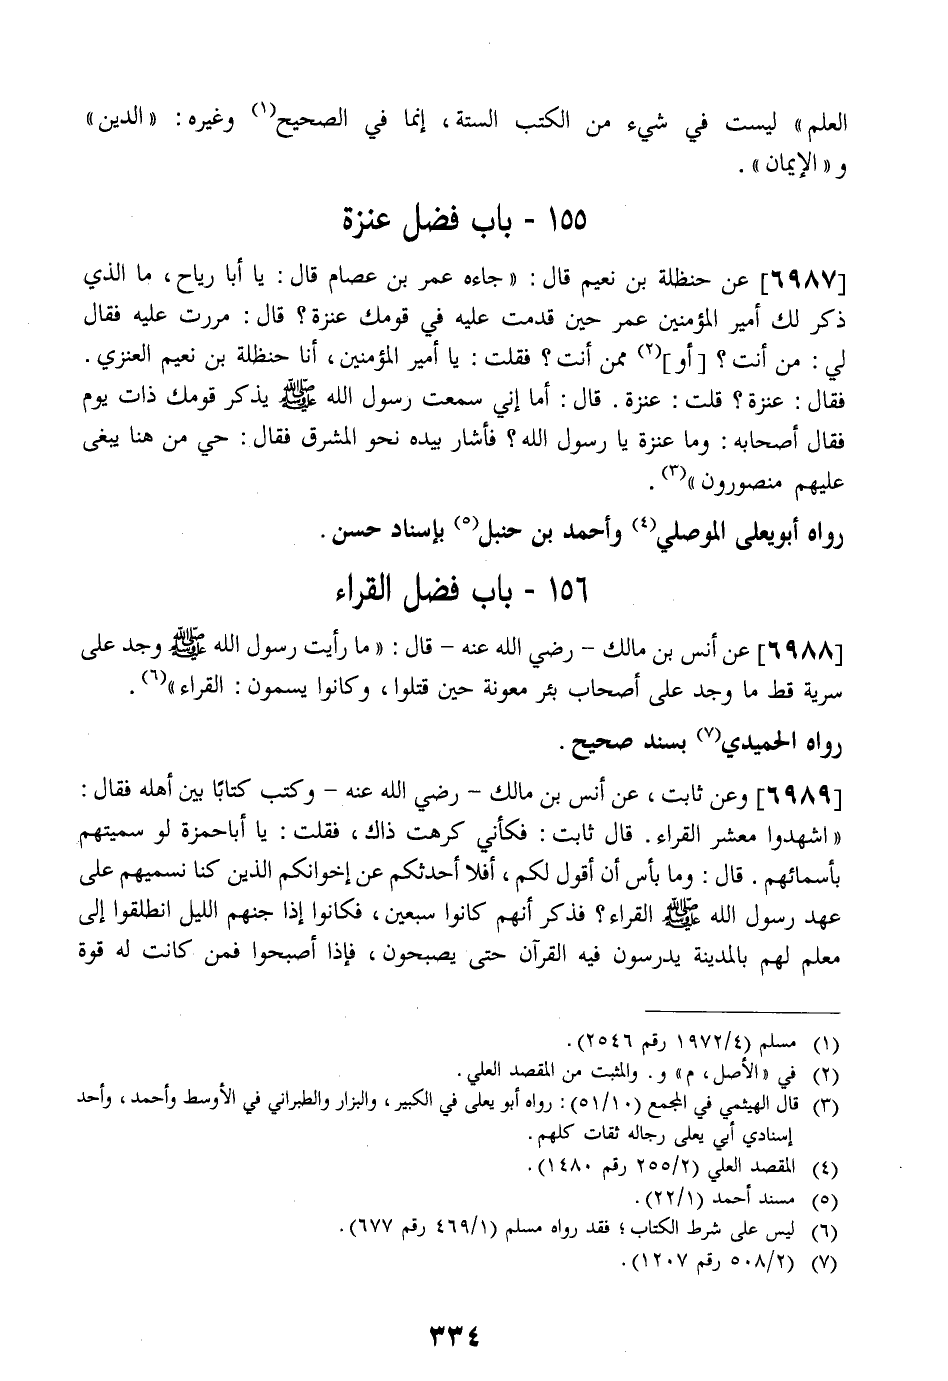 العلم» ليست في شيء من الكتب الستة، إنما في الصحيح(١) وغيره: «الدين»
و«الإيمان».
١٥٥ - باب فضل عنزة
[٦٩٨٧] عن حنظلة بن نعيم قال: «جاءه عمر بن عصام قال: يا أبا رياح، ما الذي
ذكر لك أمير المؤمنين عمر حين قدمت عليه في قومك عنزة؟ قال: مررت عليه فقال
لي: من أنت؟ [أو](٢) ممن أنت؟ فقلت: يا أمير المؤمنين، أنا حنظلة بن نعيم العنزي.
فقال: عنزة؟ قلت: عنزة. قال: أما إني سمعت رسول الله ﷺ يذكر قومك ذات يوم
فقال أصحابه: وما عنزة يا رسول الله؟ فأشار بيده نحو المشرق فقال: حي من هنا يبغى
عليهم منصورون»(٣).
رواه أبويعلى الموصلي(٤) وأحمد بن حنبل(٥) بإسناد حسن.
١٥٦ - باب فضل القراء
[٦٩٨٨] عن أنس بن مالك - رضي الله عنه - قال: «ما رأيت رسول الله ﷺ وجد على
سرية قط ما وجد على أصحاب بئر معونة حين قتلوا، وكانوا يسمون: القراء»(٦).
رواه الحميدي(٧) بسند صحيح.
[٦٩٨٩] وعن ثابت، عن أنس بن مالك - رضي الله عنه - وكتب كتابًا بين أهله فقال:
«اشهدوا معشر القراء. قال ثابت: فكأني كرهت ذاك، فقلت: يا أباحمزة لو سميتهم
بأسمائهم. قال: وما بأس أن أقول لكم، أفلا أحدثكم عن إخوانكم الذين كنا نسميهم على
عهد رسول الله ﷺ القراء؟ فذكر أنهم كانوا سبعين، فكانوا إذا جنهم الليل انطلقوا إلى
معلم لهم بالمدينة يدرسون فيه القرآن حتى يصبحون، فإذا أصبحوا فمن كانت له قوة
(١) مسلم (١٩٧٢/٤ رقم ٢٥٤٦).
(٢) في «الأصل، م» و. والمثبت من المقصد العلي.
(٣) قال الهيثمي في المجمع (٥١/١٠): رواه أبو يعلى في الكبير، والبزار والطبراني في الأوسط وأحمد، وأحد
إسنادي أبي يعلى رجاله ثقات كلهم.
(٤) المقصد العلي (٢٥٥/٢ رقم ١٤٨٠).
(٥) مسند أحمد (٢٢/١).
(٦) ليس على شرط الكتاب؛ فقد رواه مسلم (٤٦٩/١ رقم ٦٧٧).
(٧) (٥٠٨/٢ رقم ١٢٠٧).
٣٣٤